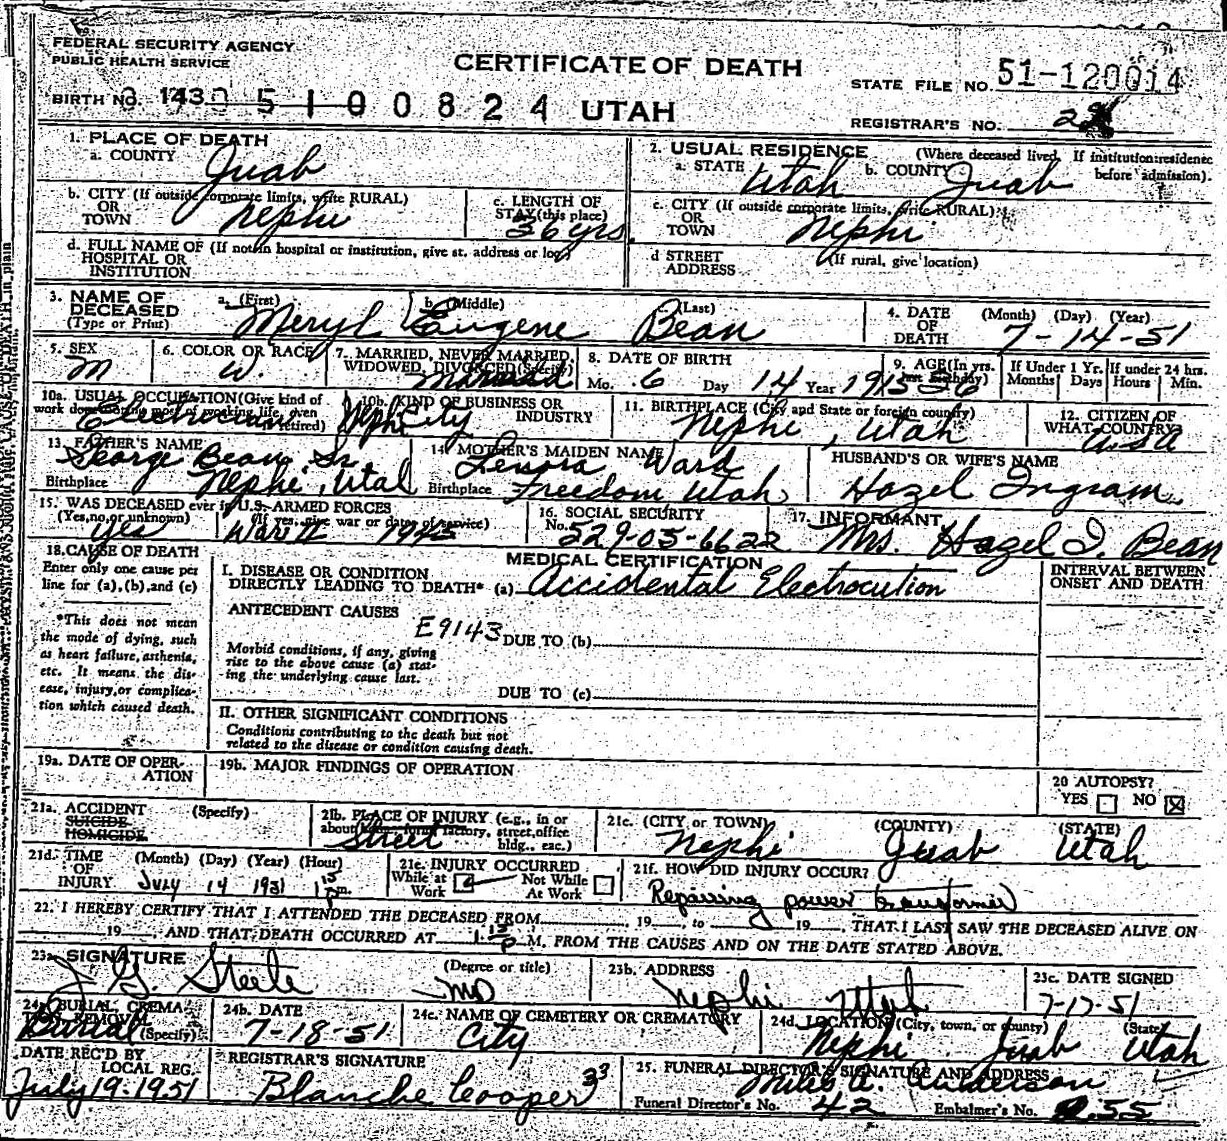 FEDERAL SECURITY AGENCY
PUBLIC HEALTH SERVICE
CERTIFICATE OF DEATH
STATE FILE NO. 51-120014
BIRTH NO. 1430 5100824 UTAH
REGISTRAR'S NO. 2
1. PLACE OF DEATH
a. COUNTY Juab
2. USUAL RESIDENCE (Where deceased lived. If institution: residence before admission).
a. STATE Utah b. COUNTY Juab
b. CITY (If outside corporate limits, write RURAL)
OR
TOWN Nephi
c. LENGTH OF
STAY (this place)
36 yrs.
c. CITY (If outside corporate limits, write RURAL)
OR
TOWN Nephi
d. FULL NAME OF (If not in hospital or institution, give st. address or loc)
HOSPITAL OR
INSTITUTION
d STREET (If rural, give location)
ADDRESS
3. NAME OF
DECEASED
(Type or Print)
a. (First) b. (Middle) (Last)
Meryl Eugene Bean
4. DATE
OF
DEATH
(Month) (Day) (Year)
7-14-51
5. SEX
M
6. COLOR OR RACE
W.
7. MARRIED, NEVER MARRIED,
WIDOWED, DIVORCED (Specify)
Married
8. DATE OF BIRTH
Mo. 6 Day 14 Year 1915
9. AGE (In yrs. last birthday)
36
If Under 1 Yr. Months Days
If under 24 hrs. Hours Min.
10a. USUAL OCCUPATION (Give kind of
work done during most of working life, even
retired)
Electrician
10b. KIND OF BUSINESS OR
INDUSTRY
Nephi City
11. BIRTHPLACE (City and State or foreign country)
Nephi, Utah
12. CITIZEN OF
WHAT COUNTRY?
USA
13. FATHER'S NAME
George Bean Sr.
Birthplace Nephi, Utah
14. MOTHER'S MAIDEN NAME
Lenora Ward
Birthplace Freedom Utah
HUSBAND'S OR WIFE'S NAME
Hazel Ingram
15. WAS DECEASED ever in U.S. ARMED FORCES
(Yes, no, or unknown) (If yes, give war or dates of service)
Yes War II 1945
16. SOCIAL SECURITY
No. 529-05-6622
17. INFORMANT
Mrs. Hazel I. Bean
18. CAUSE OF DEATH
Enter only one cause per
line for (a), (b), and (c)
*This does not mean
the mode of dying, such
as heart failure, asthenia,
etc. It means the dis-
ease, injury, or complica-
tion which caused death.
MEDICAL CERTIFICATION
I. DISEASE OR CONDITION
DIRECTLY LEADING TO DEATH* (a) Accidental Electrocution
INTERVAL BETWEEN
ONSET AND DEATH
ANTECEDENT CAUSES
E9143 DUE TO (b)
Morbid conditions, if any, giving
rise to the above cause (a) stat-
ing the underlying cause last.
DUE TO (c)
II. OTHER SIGNIFICANT CONDITIONS
Conditions contributing to the death but not
related to the disease or condition causing death.
19a. DATE OF OPER-
ATION
19b. MAJOR FINDINGS OF OPERATION
20 AUTOPSY?
YES NO
21a. ACCIDENT (Specify)
SUICIDE
HOMICIDE
21b. PLACE OF INJURY (e.g., in or
about home, farm, factory, street, office
bldg., etc.)
Street
21c. (CITY or TOWN) (COUNTY) (STATE)
Nephi Juab Utah
21d. TIME
OF
INJURY
(Month) (Day) (Year) (Hour)
July 14 1951 1 15 p.m.
21e. INJURY OCCURRED
While at Work Not While At Work
21f. HOW DID INJURY OCCUR?
Repairing power transformer
22. I HEREBY CERTIFY THAT I ATTENDED THE DECEASED FROM 19 , to 19 , THAT I LAST SAW THE DECEASED ALIVE ON
19 , AND THAT DEATH OCCURRED AT 1 15 P M, FROM THE CAUSES AND ON THE DATE STATED ABOVE.
23a. SIGNATURE (Degree or title)
J G. Steele MD
23b. ADDRESS
Nephi Utah
23c. DATE SIGNED
7-17-51
24a. BURIAL, CREMA
TION, REMOVAL
(Specify)
Burial
24b. DATE
7-18-51
24c. NAME OF CEMETERY OR CREMATORY
City
24d. LOCATION (City, town, or county) (State)
Nephi Juab Utah
DATE REC'D BY
LOCAL REG.
July 19-1951
REGISTRAR'S SIGNATURE
Blanche Cooper 33
25. FUNERAL DIRECTOR'S SIGNATURE AND ADDRESS
Miles A. Anderson
Funeral Director's No. 42 Embalmer's No. 55